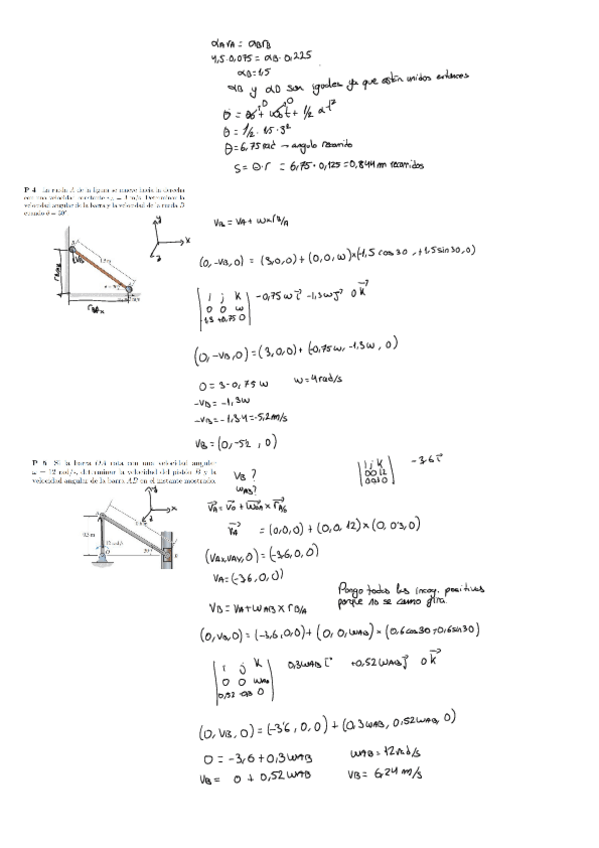 αA rA = αB rB
4,5·0,075 = αB·0,225
αB=1.5
αB y αD son iguales ya que están unidos entonces
θ = θ0 + ω0t + 1/2 αt²
θ = 1/2 · 1.5 · 3²
θ = 6,75 rad → angulo recorrido
S = θ·r = 6,75 · 0,125 = 0,844 m recorridos
P 4 La rueda A de la figura se mueve hacia la derecha
con una velocidad constante = 3 m/s. Determinar la
velocidad angular de la barra y la velocidad de la rueda B
cuando θ = 30°
VB = VA + ω×rB/A
(0, -VB, 0) = (3,0,0) + (0,0,ω)×(-1,5 cos30, +1,5 sin30, 0)
i j k
0 0 ω
-1.3 +0.75 0
-0,75ω i -1,3ω j 0 k
(0, -VB, 0) = (3,0,0) + (-0,75ω, -1.3ω, 0)
0 = 3 - 0,75ω ω = 4 rad/s
-VB = -1,3ω
-VB = -1.3·4 = -5,2 m/s
VB = (0, -5.2, 0)
P 5 Si la barra OA rota con una velocidad angular
ω = 12 rad/s, determinar la velocidad del pistón B y la
velocidad angular de la barra AB en el instante mostrado.
VB ?
ωAB?
i j k
0 0 12
0 0.3 0
-3.6 i
(0,0,0) + (0,0,12)×(0, 0.3, 0)
(VAx, VAy, 0) = (-3.6, 0, 0)
VA = (-3.6, 0, 0)
Pongo todas las incog. positivas
porque no se como gira.
VB = VA + ωAB × rB/A
(0, VB, 0) = (-3.6, 0, 0) + (0, 0, ωAB) × (0.6 cos30, -0.6 sin30)
i j k
0 0 ωAB
0,52 -0.3 0
0,3ωAB i +0,52ωAB j 0 k
(0, VB, 0) = (-3'6, 0, 0) + (0,3ωAB, 0,52ωAB, 0)
0 = -3,6 + 0,3ωAB ωAB = 12 rad/s
VB = 0 + 0,52ωAB VB = 6,24 m/s